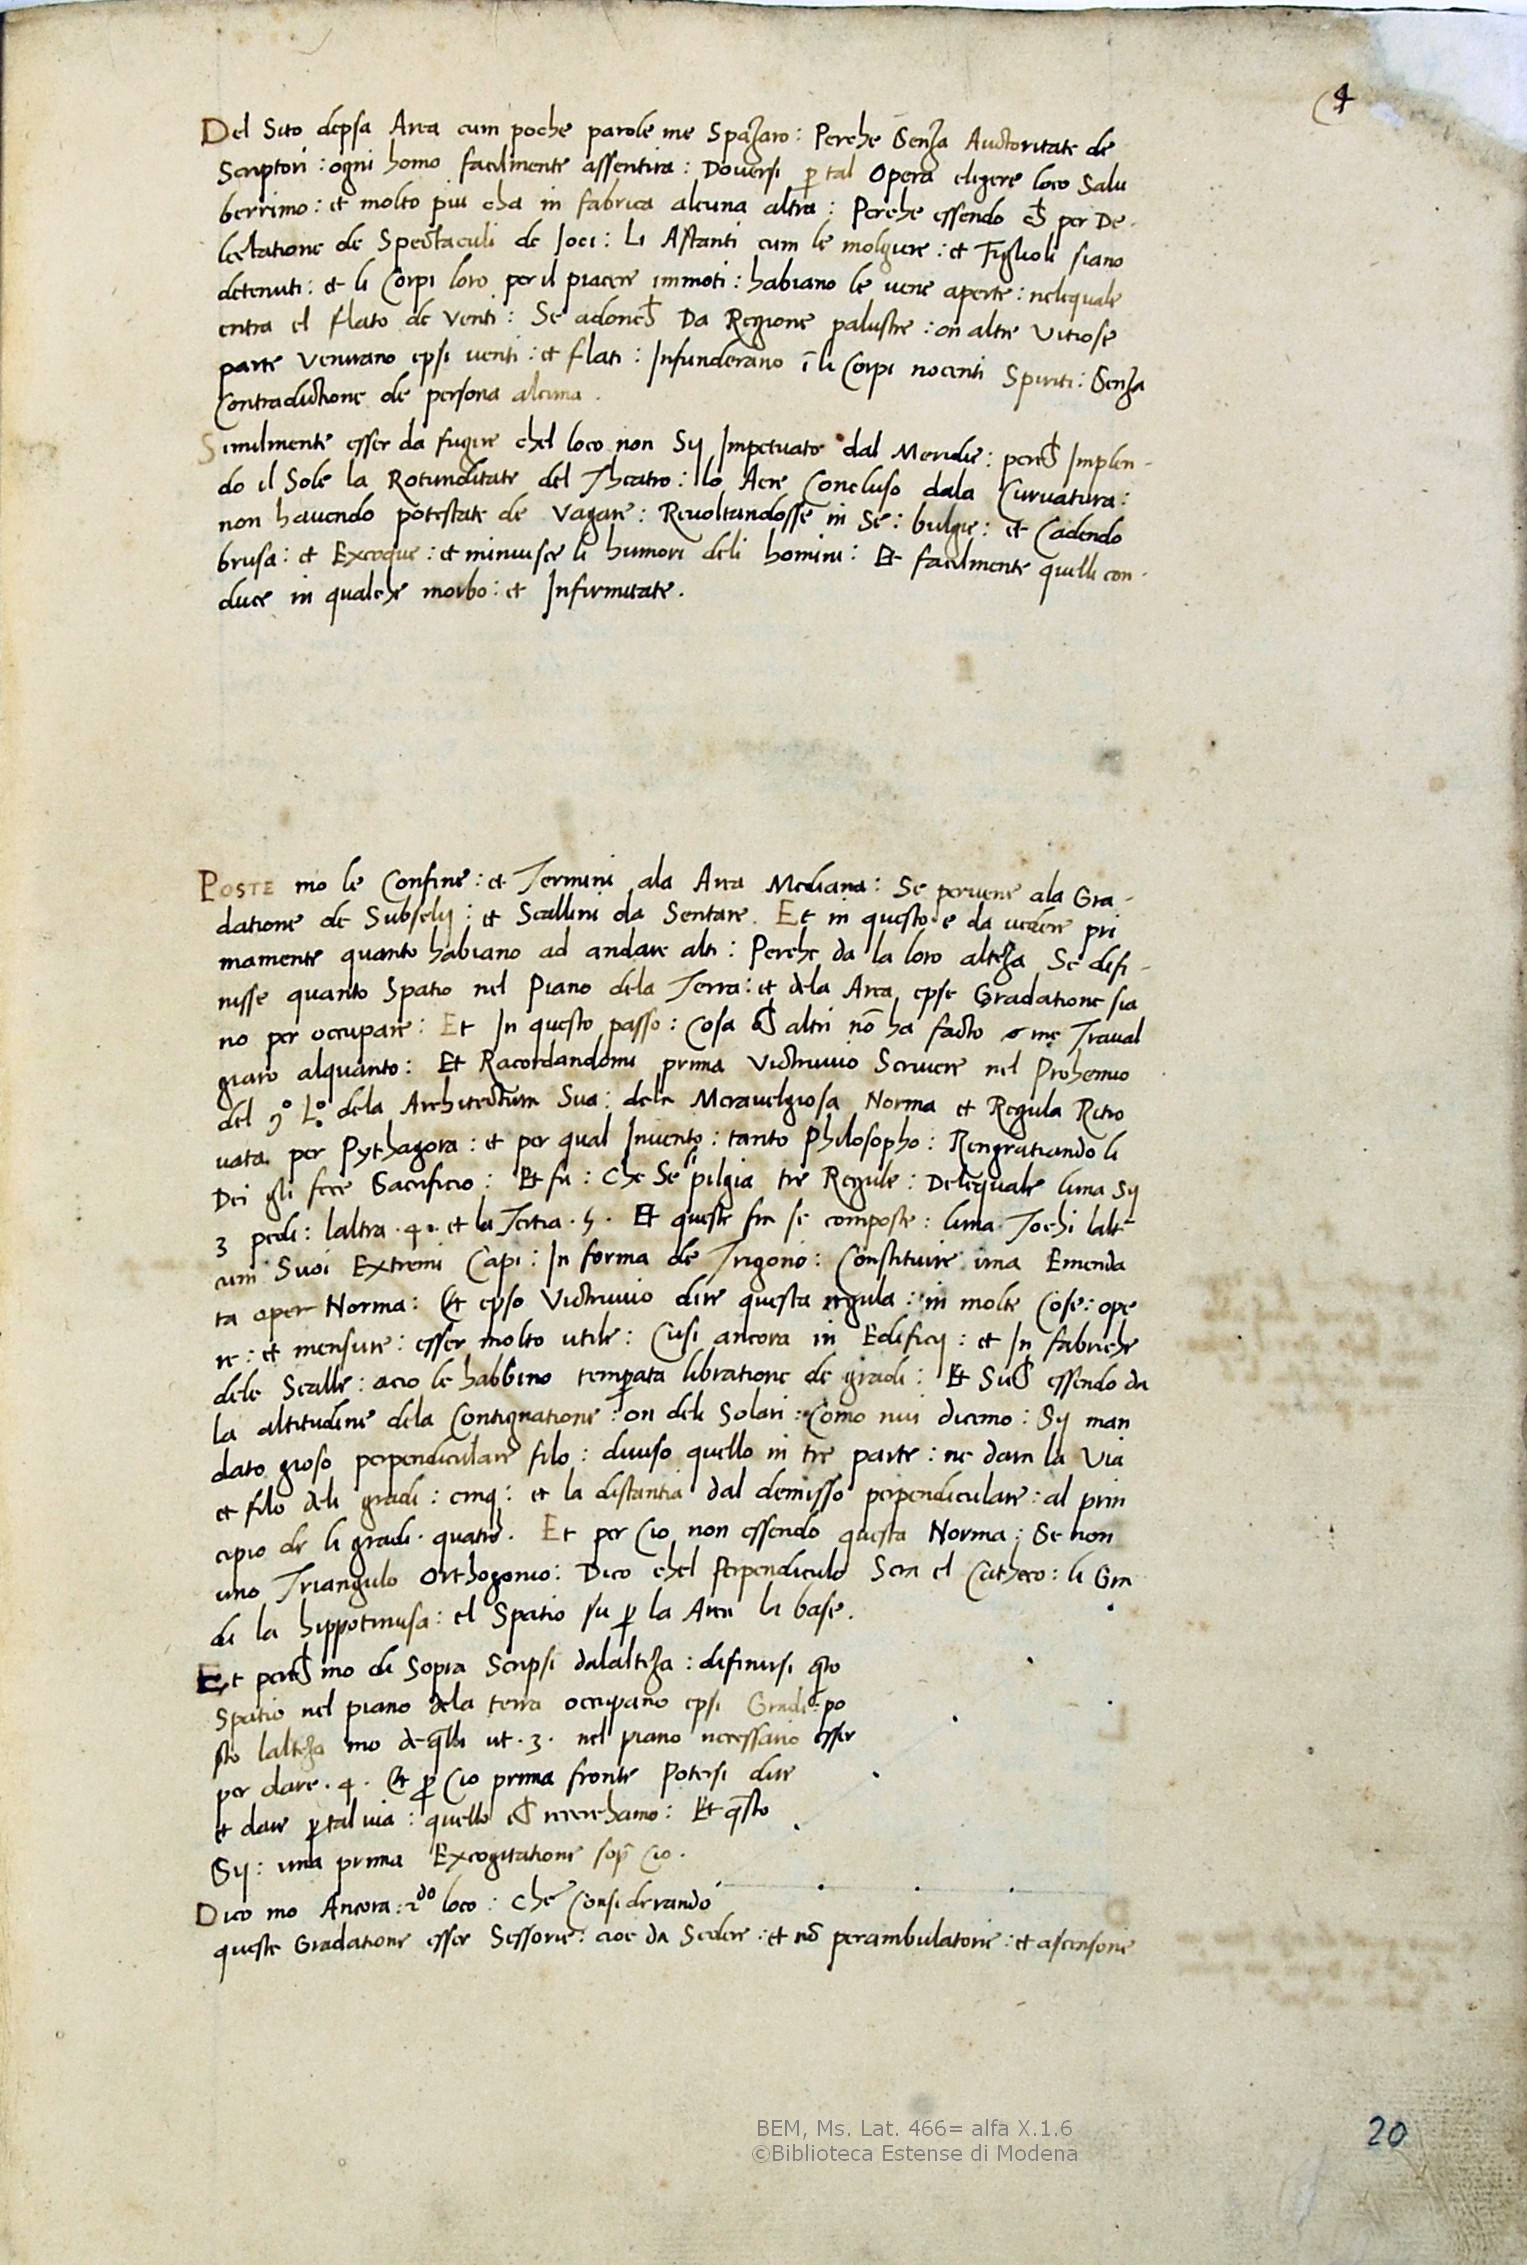 4
Del Sito depsa Area cum poche parole me Spazaro : Perche Senza Auctoritate de
Scriptori : ogni homo facilmente assentira : Doversi ꝑ tal Opera eligere loco Salu
berrimo : et molto piu cha in fabrica alcuna altra : Perche essendo ch̄ per De-
lectatione de Spectaculi de Joci : Li Astanti cum le molgiere : et Figlioli siano
detenuti : et li Corpi loro per il piacere immoti : habiano le vene aperte : nelequale
entra el flato de venti : Se adonch̄ Da Regione palustre : on altre Vitiose
parte venirano epsi venti : et flati : Infunderano ī li Corpi nocenti Spiriti : Senza
Contradictione de persona alcuna .
Similmente esser da fugire chel loco non Sij Impetuato dal Meridie : perch̄ Implen-
do il Sole la Rotunditate del Theatro : lo Aere Concluso dala Curvatura :
non havendo potestate de Vagare : Rivoltandosse in Se : bulgie : et Cadendo
brusa : et Excoque : et minuisce li humori deli homini : Et facilmente quelli con-
duce in qualche morbo : et Infirmitate .
POSTE mo le Confine : et Termini ala Area Mediana : Se perviene ala Gra-
datione de Subselij : et Scallini da Sentare . Et in questo e da vedere pri
mamente quanto habiano ad andare alti : Perche da la loro alteza Se difi-
nisse quanto Spatio nel Piano dela Terra : et dela Area epse Gradatione sia
no per occupare : Et In questo passo : Cosa ch̄ altri nō ha facto me Traval
giaro alquanto : Et Racordandomi prima Victruvio Scrivere nel Prohemio
del 9º Lº dela Architectura Sua : dela Meravelgiosa Norma et Regula Ritro
vata per Pythagora : et per qual Invento : tanto Philosopho : Rengratiando li
Dei gli fece Sacrificio : Et fu : Che Se si pilgia tre Regule : Delequale luna Sij
3 pedi : laltra . 4 . et la Tertia . 5 . Et queste fra se composte : luna Tochi laltr̄
cum Suoi Extremi Capi : In forma de Trigono : Constituire una Emenda
ta Norma : Et epso Victruvio dire questa regula : in molte Cose : ope
re : et mensure : esser molto utile : Cusi ancora in Edificij : et In fabriche
dele Scalle : acio le habbino temperata libratione de gradi : Et Such̄ essendo da
la altitudine dela Contignatione : on deli Solari : Como nui dicemo : Sij man
dato gioso perpendiculare filo : diviso quello in tre parte : ne dara la Via
et filo deli gradi : cinq : et la distantia dal demisso perpendiculare : al prin
cipio de li gradi . quatro . Et per Cio non essendo questa Norma : Se non
uno Triangulo Orthogonio : Dico chel perpendiculo Sera el Catheto : li Gra
di la hippotenusa : el Spatio su ꝑ la Area la base .
Et perch̄ mo di Sopra Scripsi dalalteza : difinirsi q̄to
Spatio nel piano dela terra occupano epsi Gradi : po
sto lalteza mo de q̄lli ut . 3 . nel piano necessario esser
per dare . 4 . Et ꝑ Cio prima fronte Potersi dire
et dare ꝑ tal via : quello ch̄ recerchamo : Et q̄sto
Sij : una prima Excogitatione sopr̄ Cio .
Dico mo Ancora : 2do loco : Che Considerando
queste Gradatione esser Sessorie : cioe da Sedere : et nō perambulatorie : et ascensorie
20
BEM, Ms. Lat. 466= alfa X.1.6
©Biblioteca Estense di Modena